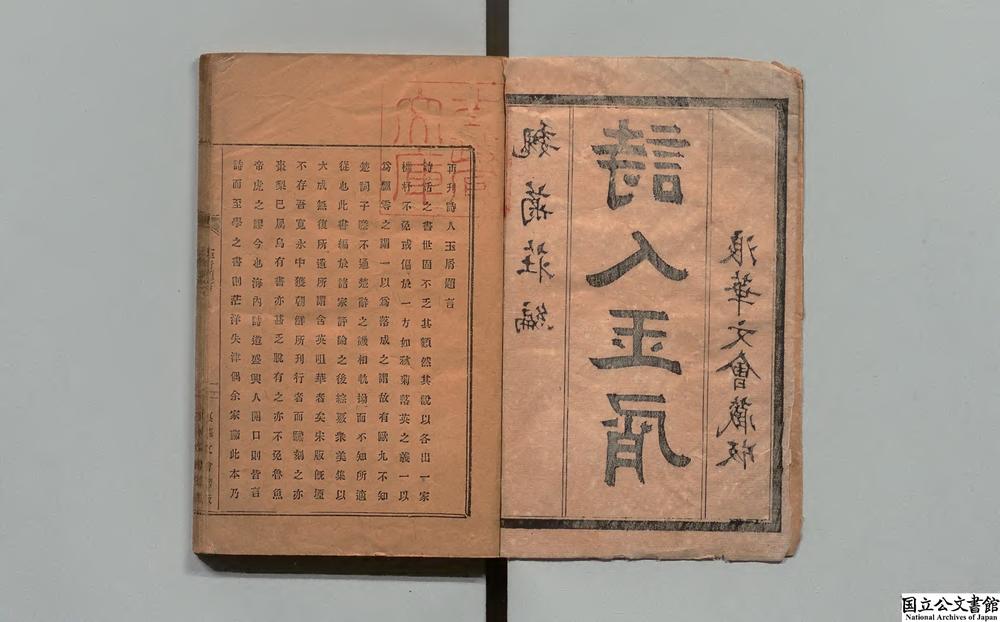 魏菊莊編
詩人玉屑
浪華文會藏版
再刊詩人玉屑題言
詩話之書世固不乏其類然其說以各出一家
機杼不免或偏於一方如秋菊落英之義一以
爲飄零之謂一以爲落成之謂故有歐九不知
楚詞子瞻不通楚辭之譏相軌揚而不知所適
從也此書編於諸家評論之後綜聚衆美集以
大成無復所遺所謂含英咀華者矣宋版旣堙
不存吾寬永中獲朝鮮所刊行者而翻刻之亦
棗梨已屬烏有書亦甚乏脫有之亦不免魯魚
帝虎之謬今也海內詩道盛興人開口則皆言
詩而至學之書則茫洋失津偶余家藏此本乃
文庫
国立公文書館
National Archives of Japan